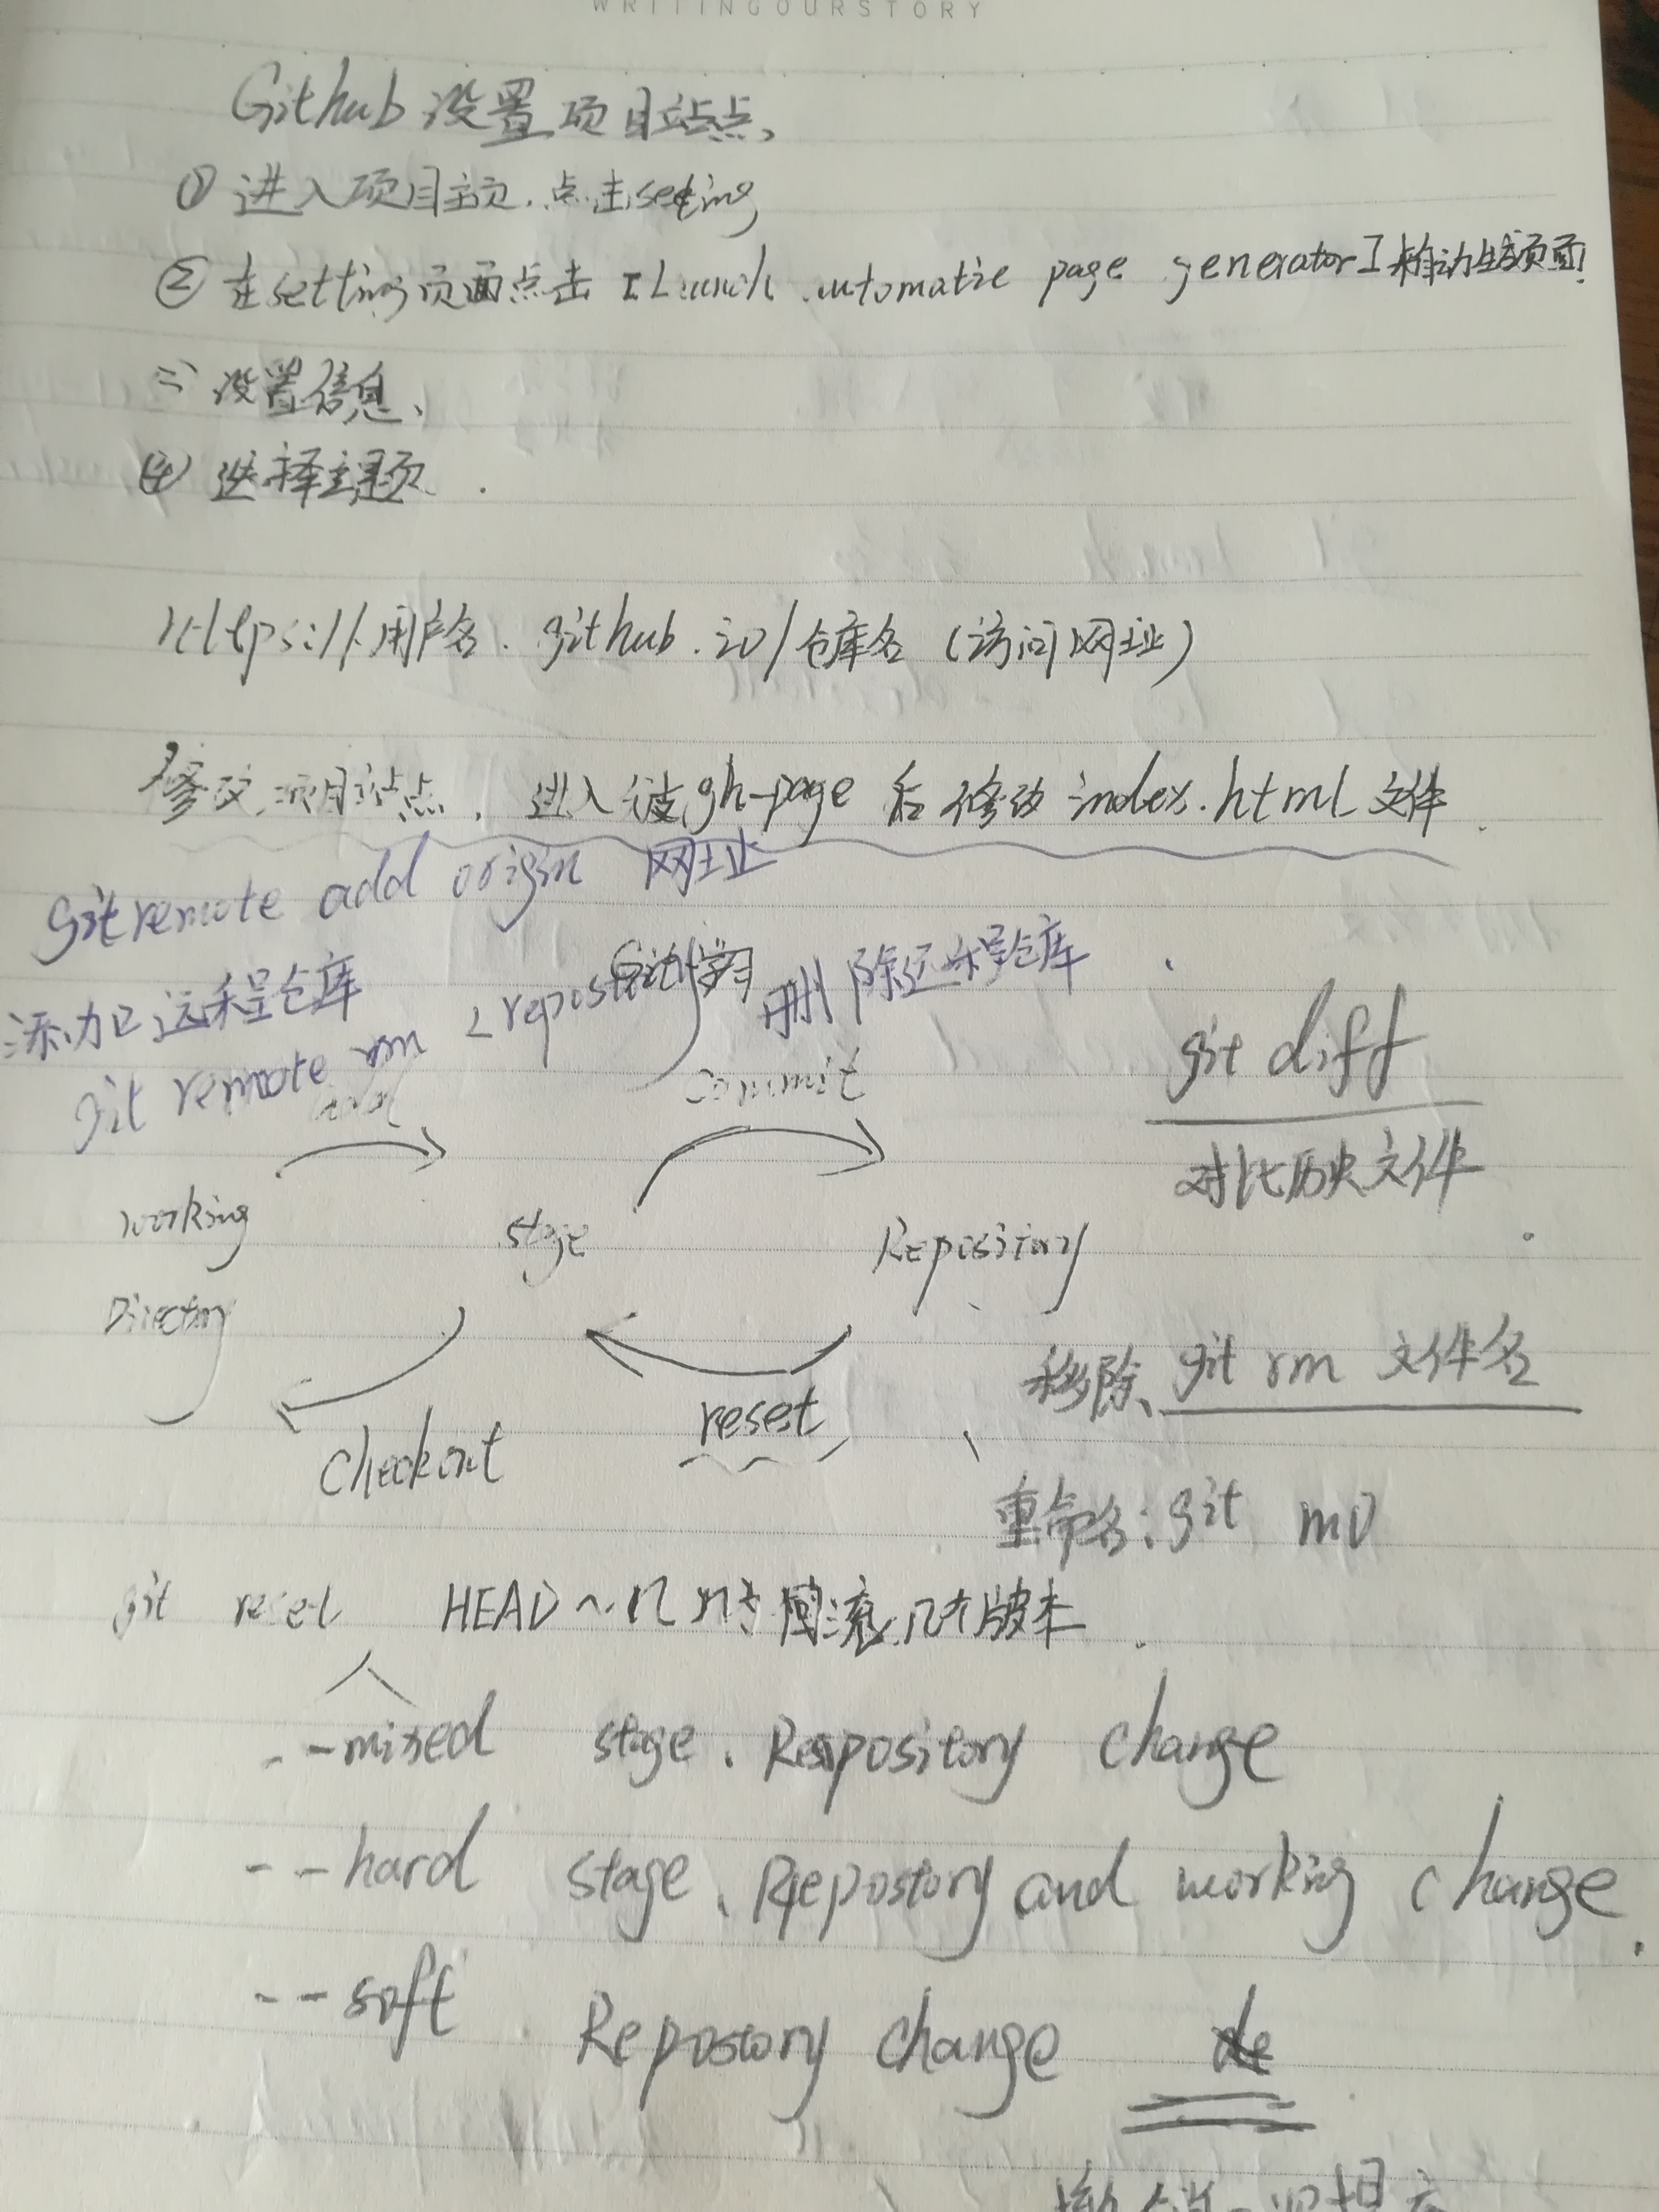 WRITINGOURSTORY
Github 设置项目站点、
① 进入项目主页. 点击setting
② 在setting页面点击 [Launch automatic page generator] 来自动生成页面
三 设置信息、
④ 选择主题.
https://用户名.github.io/仓库名 (访问网址)
修改项目站点. 进入 gh-page 后修改 index.html 文件.
git remote add origin 网址
添加远程仓库
Git学习
git remote rm <repository 删除远程仓库.
git diff
对比历史文件
add
Commit
working
stage
Repository
Directory
checkout
reset
移除、git rm 文件名
重命名: git mv
git reset HEAD~n n为回流几个版本.
--mixed stage、Repository change
--hard stage、Repostory and working change.
--soft Repostory change